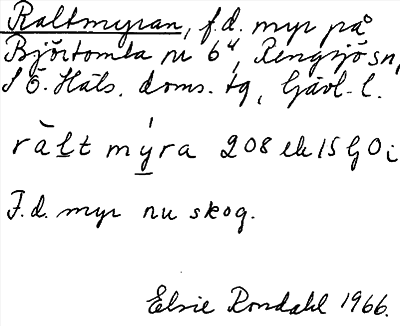 Raltmyran, f.d. myr på
Björtomta nr 6⁴, Rengsjö sn,
S Ö. Häls. doms. tg, Gävl. l.
rält myra 208 ek 15 G O i
F.d. myr nu skog.
Elsie Rondahl 1966.